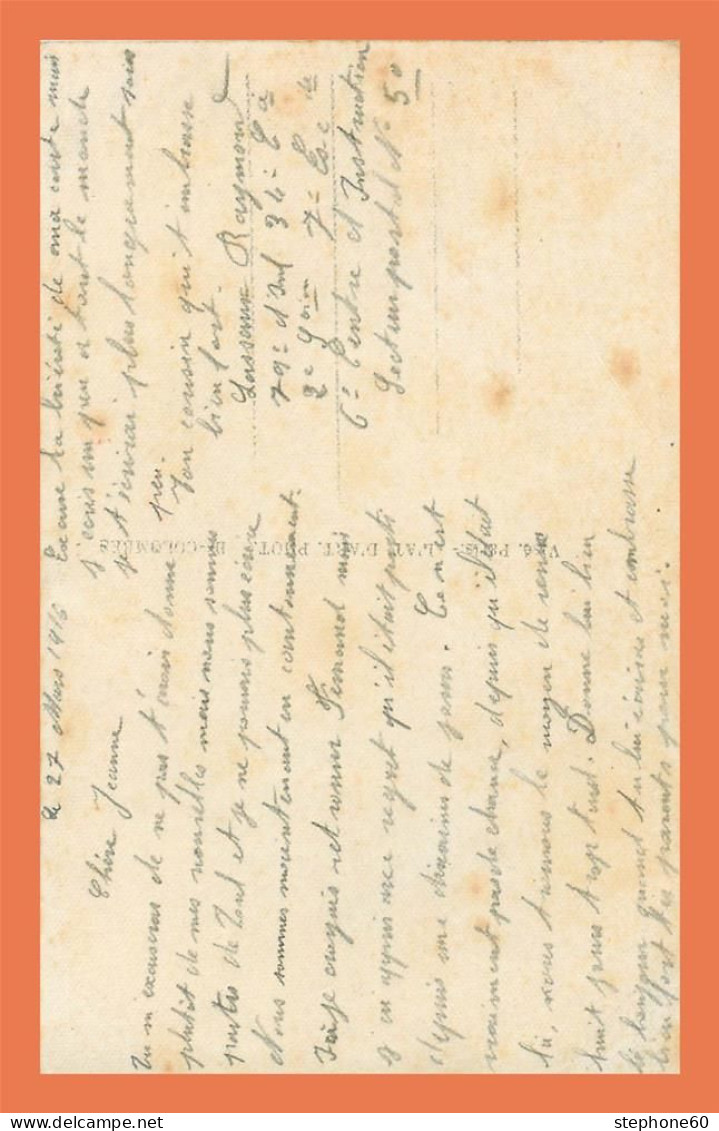 le 27 Mars 1916
Chère Jeanne
Tu m'excuseras de ne pas t'avoir donné
plutôt de mes nouvelles mais nous sommes
partis de Toul et je ne pouvais plus écrire
Nous sommes maintenant en cantonnement.
J'ai je croyais retrouver Fernand mais
j'ai appris avec regret qu'il était parti
depuis une dizaine de jours. Ce n'est
vraiment pas de chance, depuis qu'il était
là, nous trouvons le moyen de venir
huit jours trop tard. Donne lui bien
le bonjour quand tu lui écriras et embrasse
bien fort tes parents pour moi.
Excuse la brièveté de ma carte mais
j'écris un peu à tout le monde
je t'écrirai plus longuement sous
peu.
Ton cousin qui t'embrasse
bien fort.
Raymond
79e d'Inf 34e Cie
2e 7e Esc de
6e Centre d'Instruction
Secteur postal No 50
D'ART. PHOT. COLOMBES
stephone60